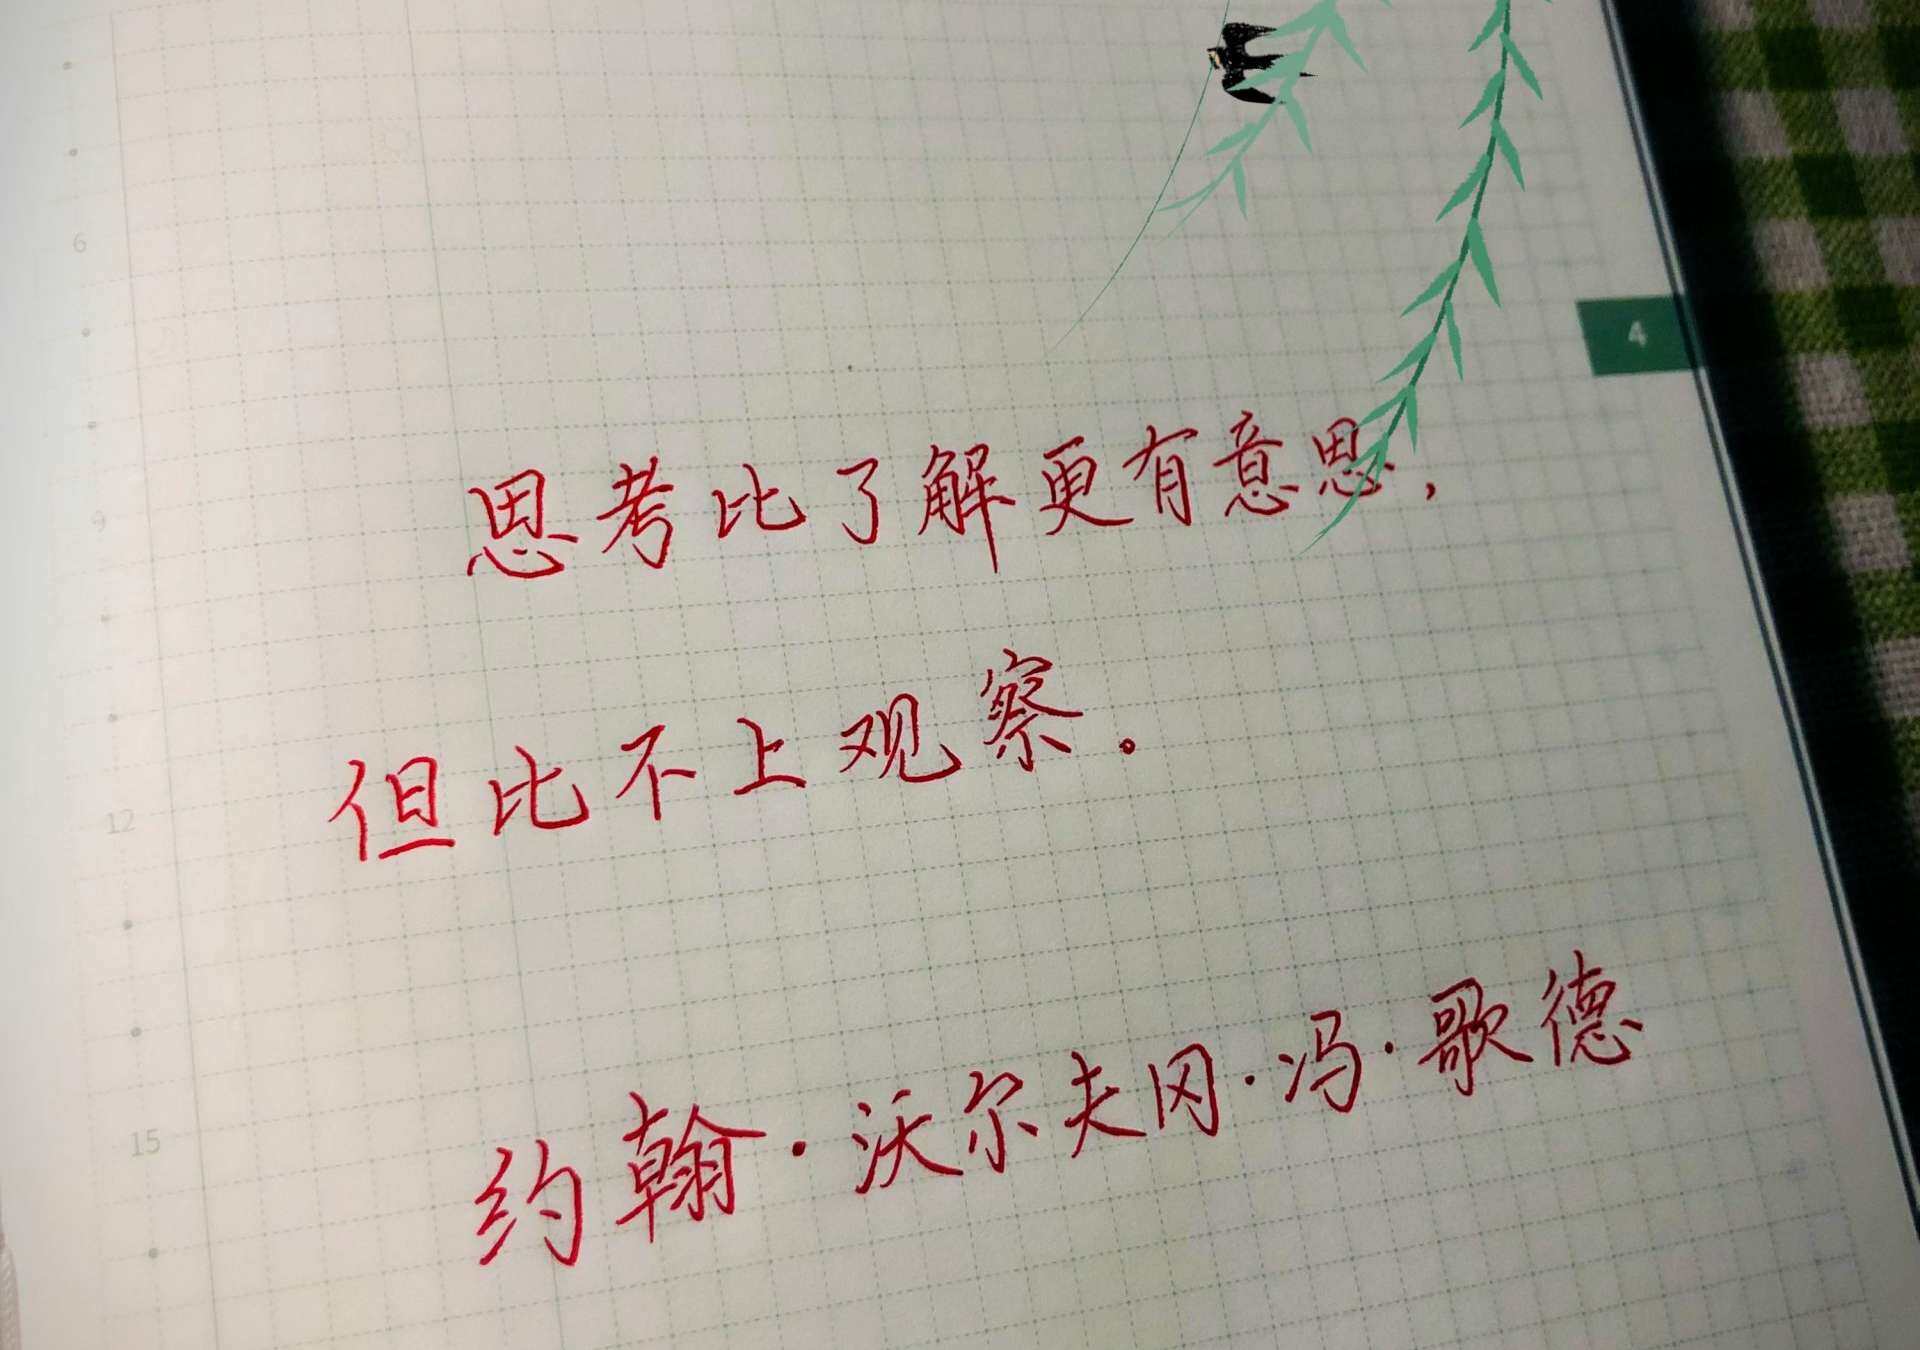 4
6
思考比了解更有意思，
9
但比不上观察。
12
约翰·沃尔夫冈·冯·歌德
15